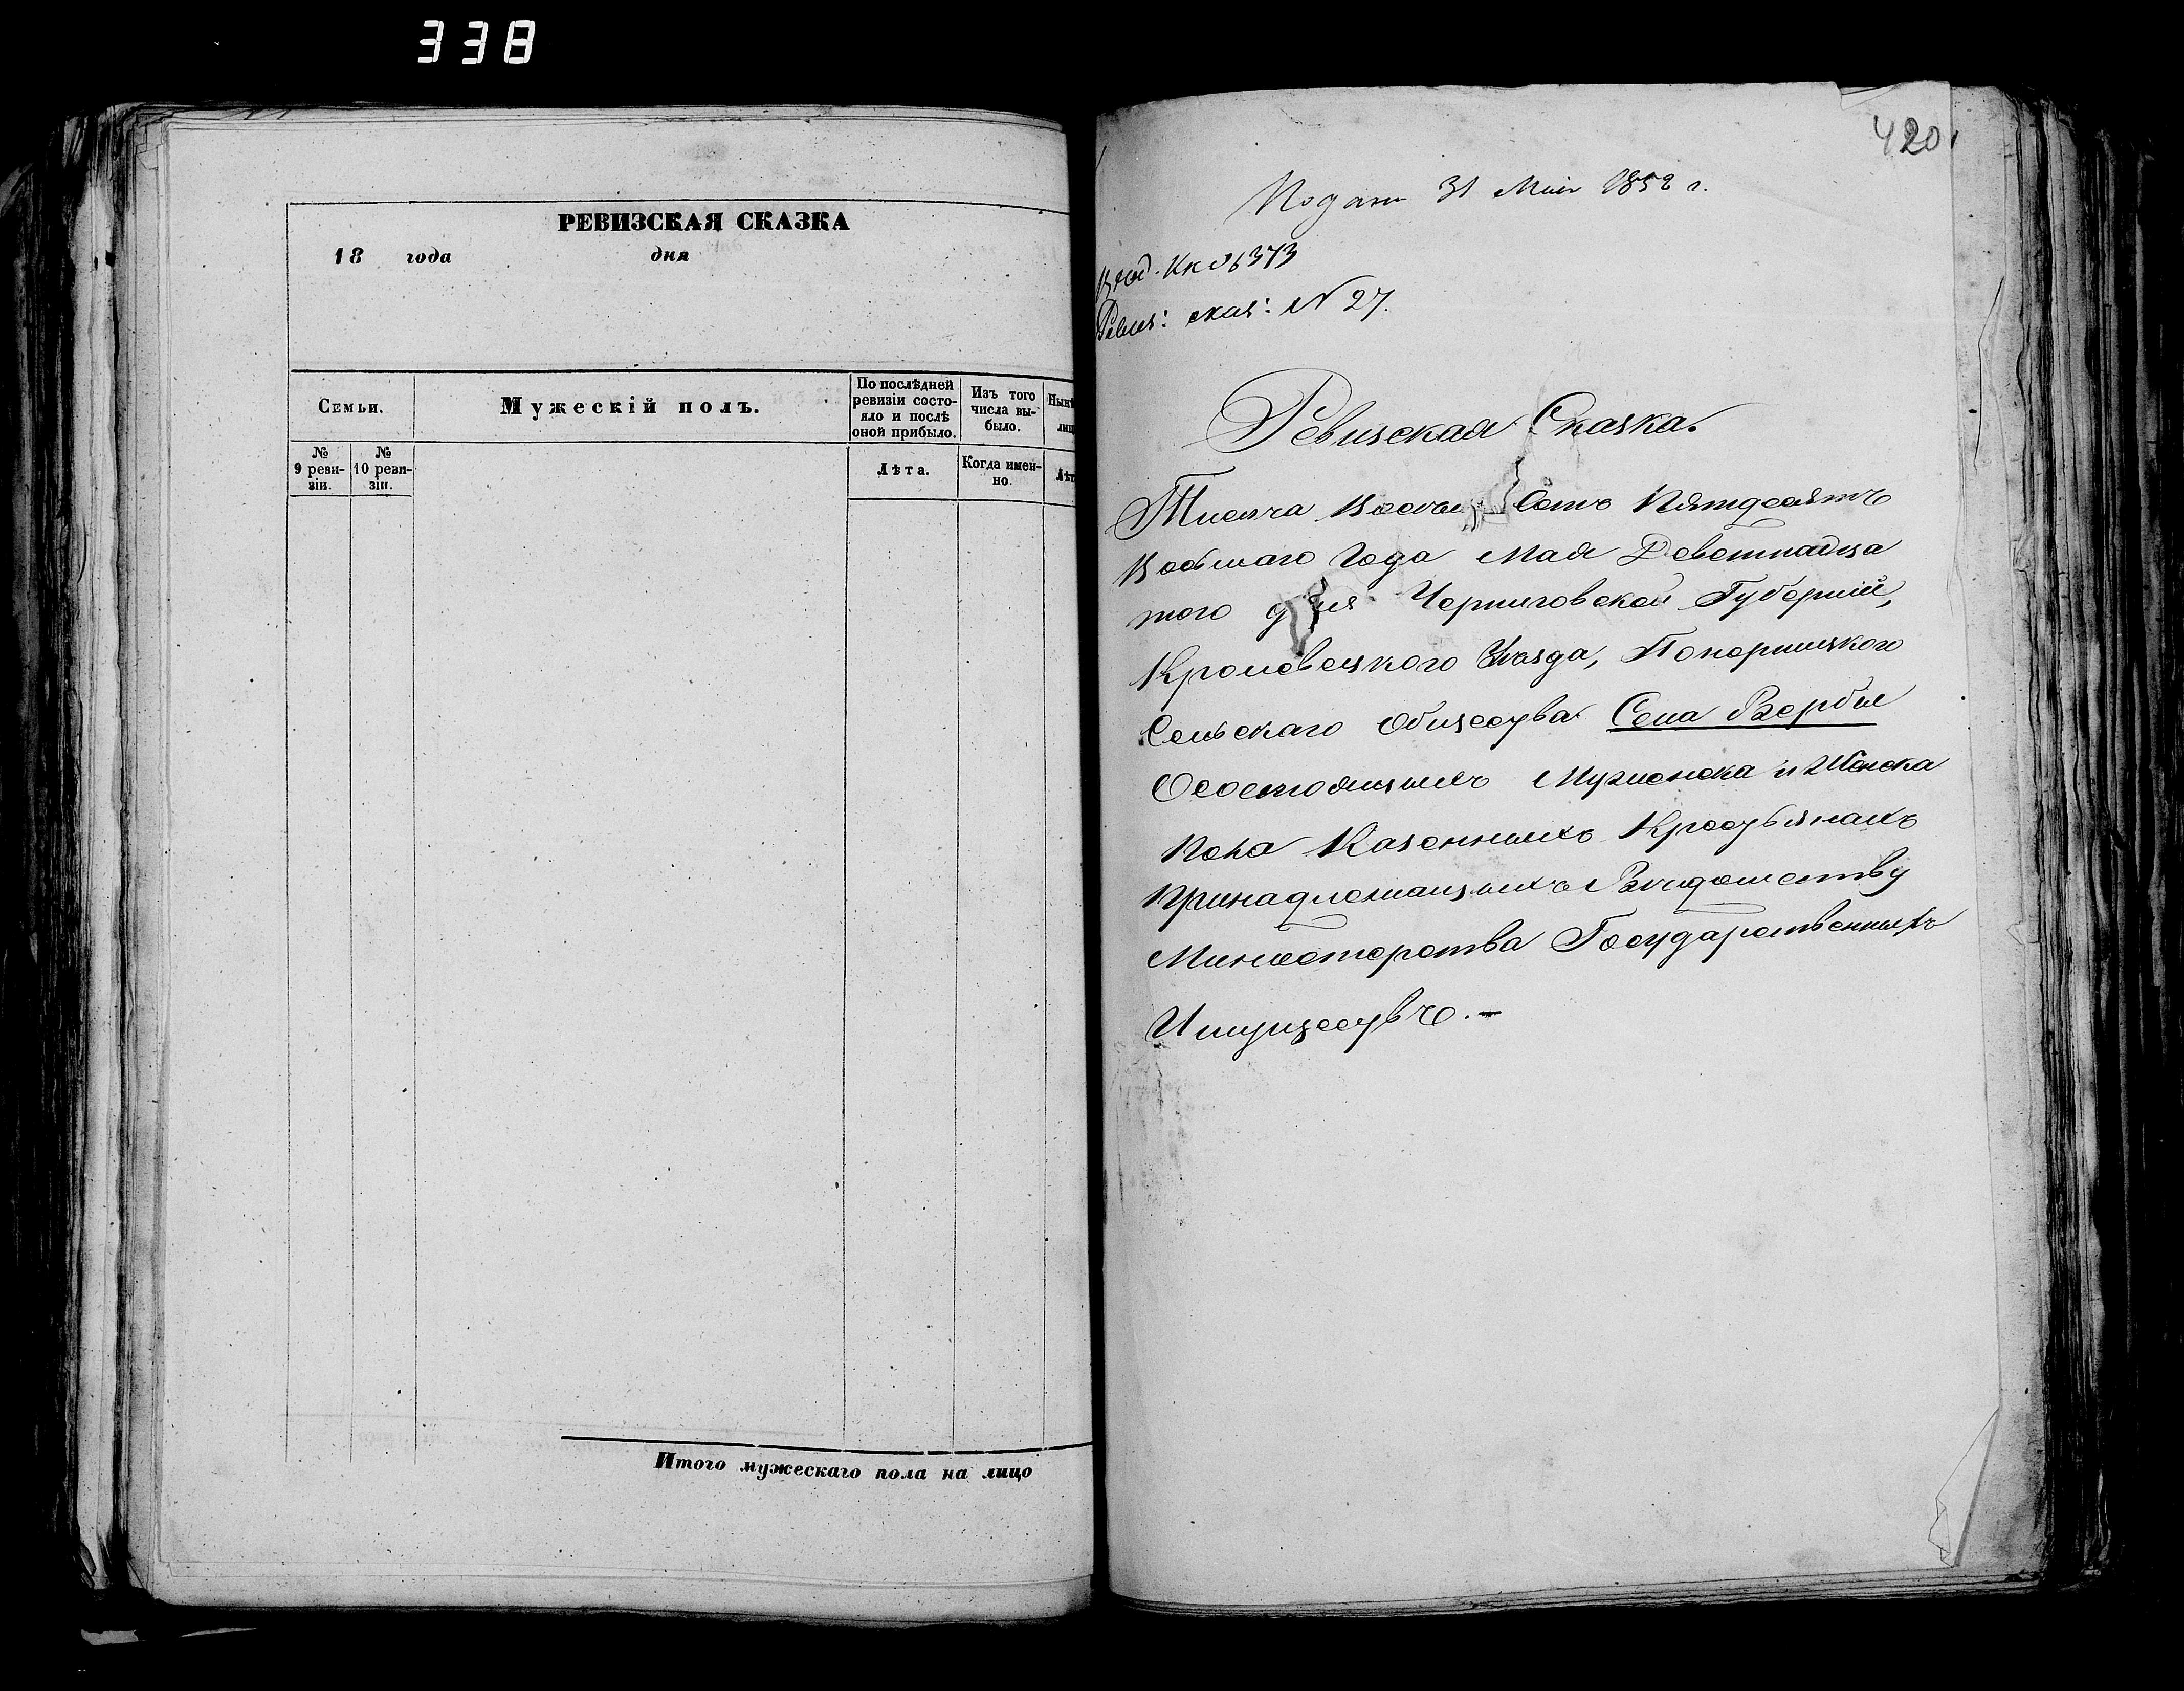 338
РЕВИЗСКАЯ СКАЗКА
18 года дня
Семьи.
Мужескій полъ.
По послѣдней ревизіи состо-
яло и послѣ оной прибыло.
Изъ того числа вы-
было.
№ 9 реви-
зіи.
№ 10 реви-
зіи.
Лѣта.
Когда имен-
но.
Итого мужескаго пола на лицо
420
Подана 31 Мая 1858 г.
Ревиз: сказ: N 27.
Ревизская Сказка.
Тисяча Восем Сотъ Пятдесятъ
Восьмаго Года Мая Деветнадца
того дня Черниговской Губерніи,
Кролевецкого Уезда, Понорницкого
Сельскаго Общества Села Вербы
Осостоящихъ Мужеска и Женска
Пола Казенныхъ Крестьянахъ
Принадлежащихъ Вѣдомству
Министерства Государственныхъ
Имуществъ.-